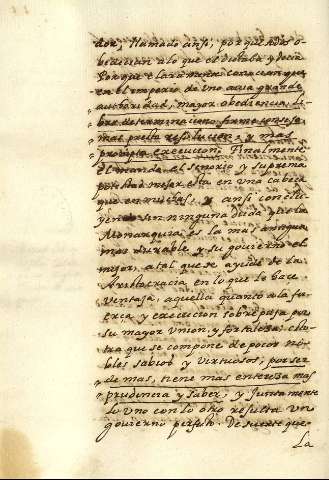 dor, llamado ansi, porque dios o-
bedecian a lo que el dictaba y decia
Porque claramente conocian que
en el imperio de Uno avia grande
authoridad, mayor obediencia, li-
bre determinacion, firme consejo
mas presta resolucion, y mas
prompta execucion. Finalmente
el mando, el señorio y suprema
potestad mejor esta en una cabeza
que en muchas. y ansi conclu-
yen sin ninguna duda que la
Monarquia es la mas antigua
mas durable y su govierno el
mejor, a tal que se ayude de la
Aristocracia en lo que le hace
ventaja, aquella quanto a la fu-
erça y execucion sobrepuja por
su mayor Union, y fortaleza, elo-
tra que se compone de pocos no-
bles sabios y virtuosos, por ser
de mas, tiene mas entereza mas
prudencia y saber, y juntamente
lo Uno con lo otro resulta Un
govierno perfeto. De suerte que
La